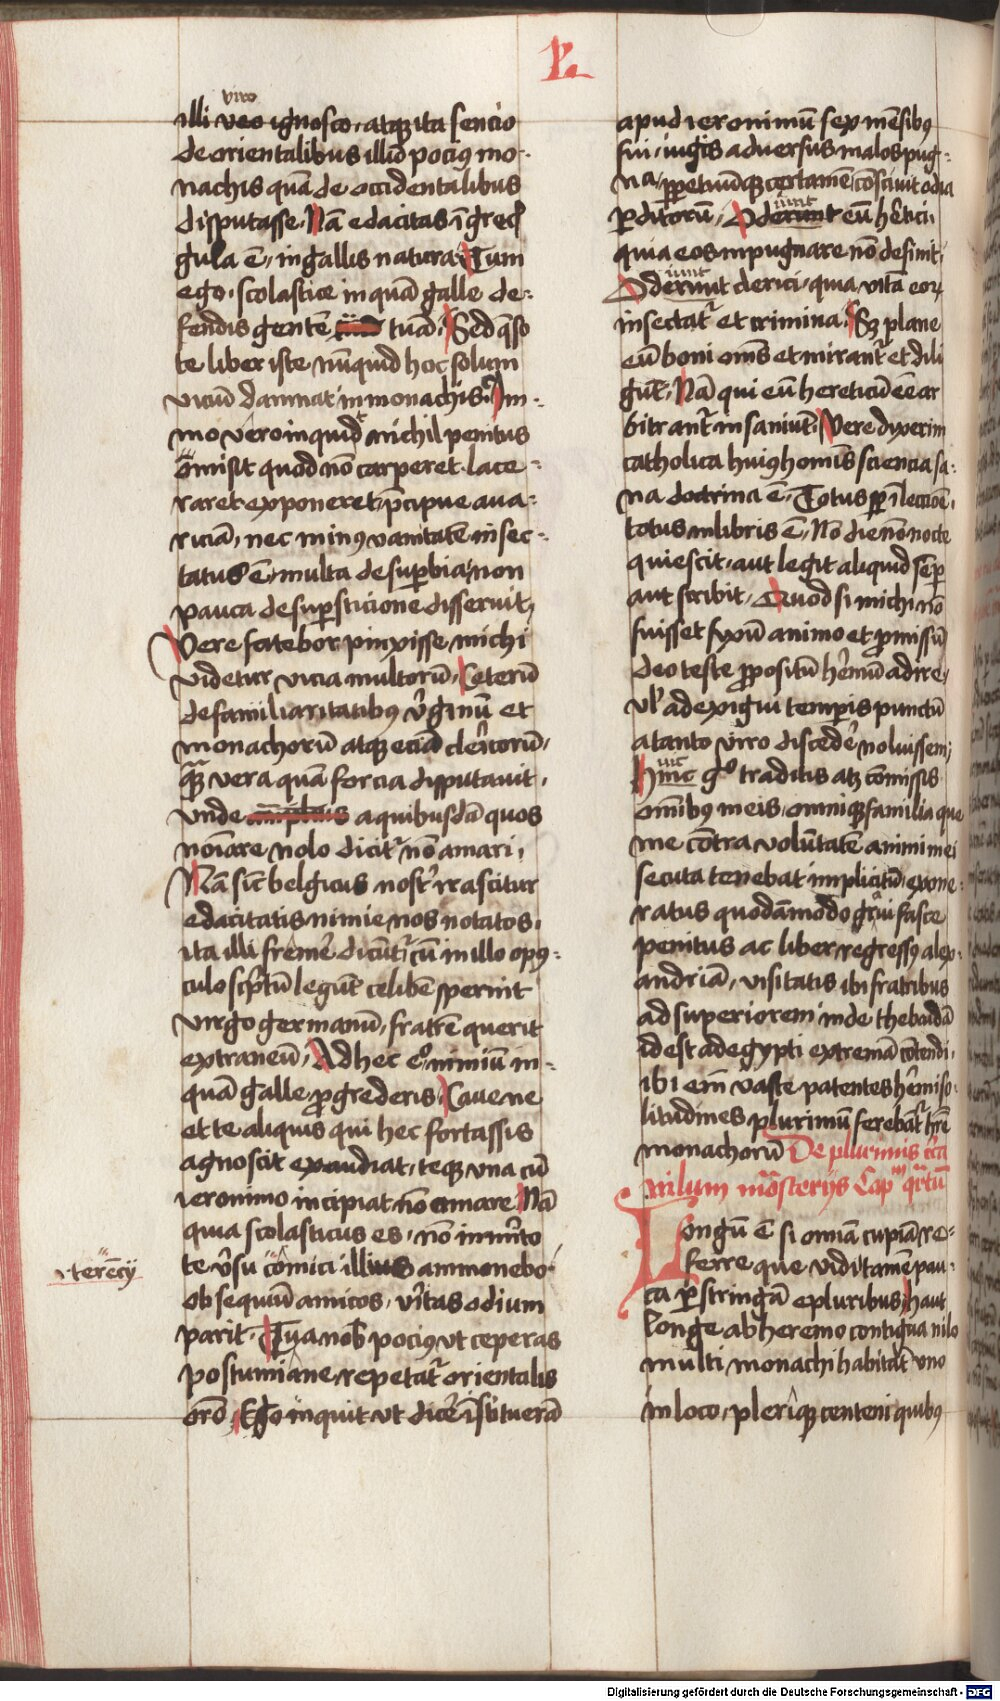 L
viro
illi veo ignosco, atqꝫ ita sencio
de orientalibus illud pociꝰ mo-
nachis quā de occidentalibus
disputasse. Nā edacitas ī grecꝭ
gula ē, in gallis natura. Tum
ego, scolastice inquā galle de-
fendis gentē tuā. Sed q̄so
te liber iste, nūquid hoc solum
viciū damnat in monachis. Im-
mo vero inquid nichil penitus
omisit quod nō carperet lace-
raret exponeret, p̄cipue ava-
riciā, nec minꝰ vanitatē insec-
tatus ē, multa de suꝑbia, non
pauca de suꝑsticione disseruit,
Vere fatebor pinxisse, michi
videtur vicia multorū. Ceterū
de familiaritatibꝰ v̓ginū et
monachorū atqꝫ eciā cl̓icorū,
qꝫ vera quā forcia disputavit,
vnde a quibusdā quos
noīare nolo dicit̓ nō amari,
Nam sic̄ belgicus nost̓ irascitur
edacitatis nimie nos notatos,
ita illi fremē̓ dicūt̓ cū in illo opꝰ-
culo sc̓ptū legūt celibē sperint
virgo germanū, fratrē querit
extraneū, Ad hec e° nimiū in-
quā galle, ꝓgrederis. Cave ne
et te aliquis qui hec fortassis
agnoscit exaudiat, teqꝫ vna cū
ieronimo incipiat nō amare. Nā
quia scolasticus es, nō inm̓ito
te v̓su comici illius ammonebo
terēcij
obsequiū amicos, v̓itas odium
parit. Tua nob̄ pociꝰ vt ceperas
postumiane, repetat̓ orientalis
oro. Ego inquit vt dicē̓ īstituerā
apud ieronimū sex mēsibꝰ
fui, iugis adversus malos pug-
na, ꝑpetuūqꝫ certamē cōscivit odia
ꝑditorū. Oderunt eū h̓etici,
quia eos inpugnare nō desinit,
Oderunt clerici, quia vitā eoꝝ
insectat̓ et crimina. Sꝫ plane
eū boni om̄s et mirant̓ et dili
gūt. Nā qui eū hereticū eē ar
bitrant̓ insaniūt. Vere dixerim
catholica huiꝰ hominis sciencia sa-
na doctrina ē. Totus sꝑ ī lectiōe,
totus in libris ē, Nō die nō nocte
quiescit, aut legit aliquid sēꝑ
aut scribit. Quod si michi nō
fuisset fixū animo et ꝓmissū
deo teste ꝓpositū h̓emū adire,
vl̓ ad exigui temꝑis punctū
a tanto viro discedē̓ noluissem,
Hinc g° traditis atqꝫ cōmissis
omībꝰ meis, omniqꝫ familia que
me cōtra volūtatē animi mei
secuta tenebat implicitū, exone-
ratus quodāmodo gravi fasce
penitus ac liber regressꝰ alex-
andriā, visitatis ibi fratribus
ad superiorem inde thebaidā
id est ad egypti extremā cōtendi,
ibi em̄ vaste patentes h̓emi so-
litudines plurimū ferebāt̓ hr̄e
monachorū De plurimis c̓ca
nilum mōsterijs Capᵐ q̓rtū
Longū ē si omīa cupiā re-
ferre que vidi tamē pau-
ca ꝑstringā e pluribus, haut
longe ab heremo contigua nilo
multi monachi habitāt vno
in loco, pleriqꝫ centeni quibꝰ
Digitalisierung gefördert durch die Deutsche Forschungsgemeinschaft - DFG